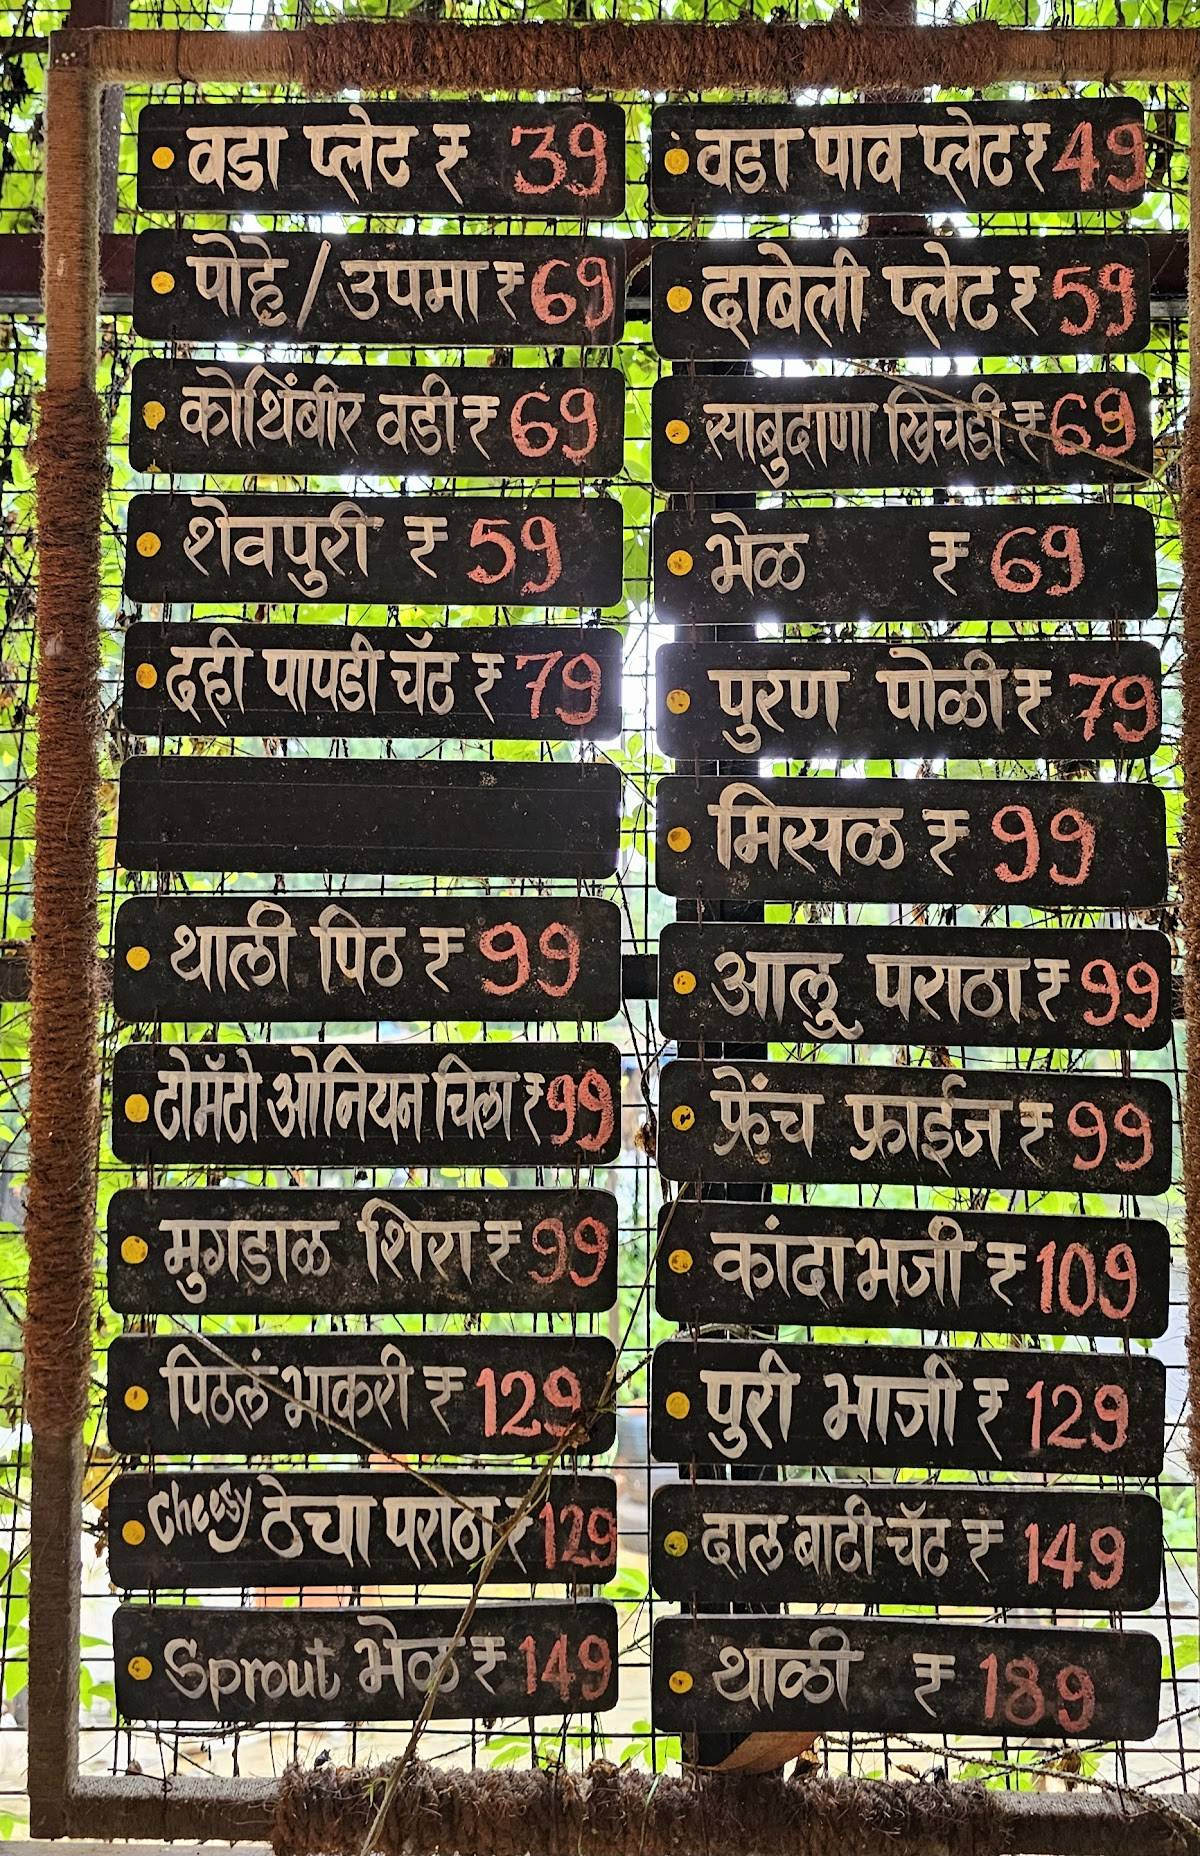 वडा प्लेट ₹ 39
पोहे / उपमा ₹ 69
कोथिंबीर वडी ₹ 69
शेवपुरी ₹ 59
दही पापडी चॅट ₹ 79
थाली पिठ ₹ 99
टोमॅटो ओनियन चिला ₹ 99
मुगडाळ शिरा ₹ 99
पिठलं भाकरी ₹ 129
Cheesy ठेचा पराठा ₹ 129
Sprout भेळ ₹ 149
वडा पाव प्लेट ₹ 49
दाबेली प्लेट ₹ 59
साबुदाणा खिचडी ₹ 69
भेळ ₹ 69
पुरण पोळी ₹ 79
मिसळ ₹ 99
आलू पराठा ₹ 99
फ्रेंच फ्राईज ₹ 99
कांदाभजी ₹ 109
पुरी भाजी ₹ 129
दाल बाटी चॅट ₹ 149
थाळी ₹ 189